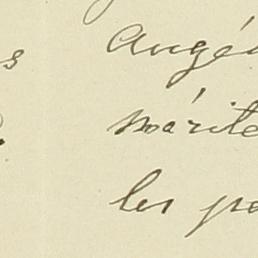 s Angé
mérite
les pe